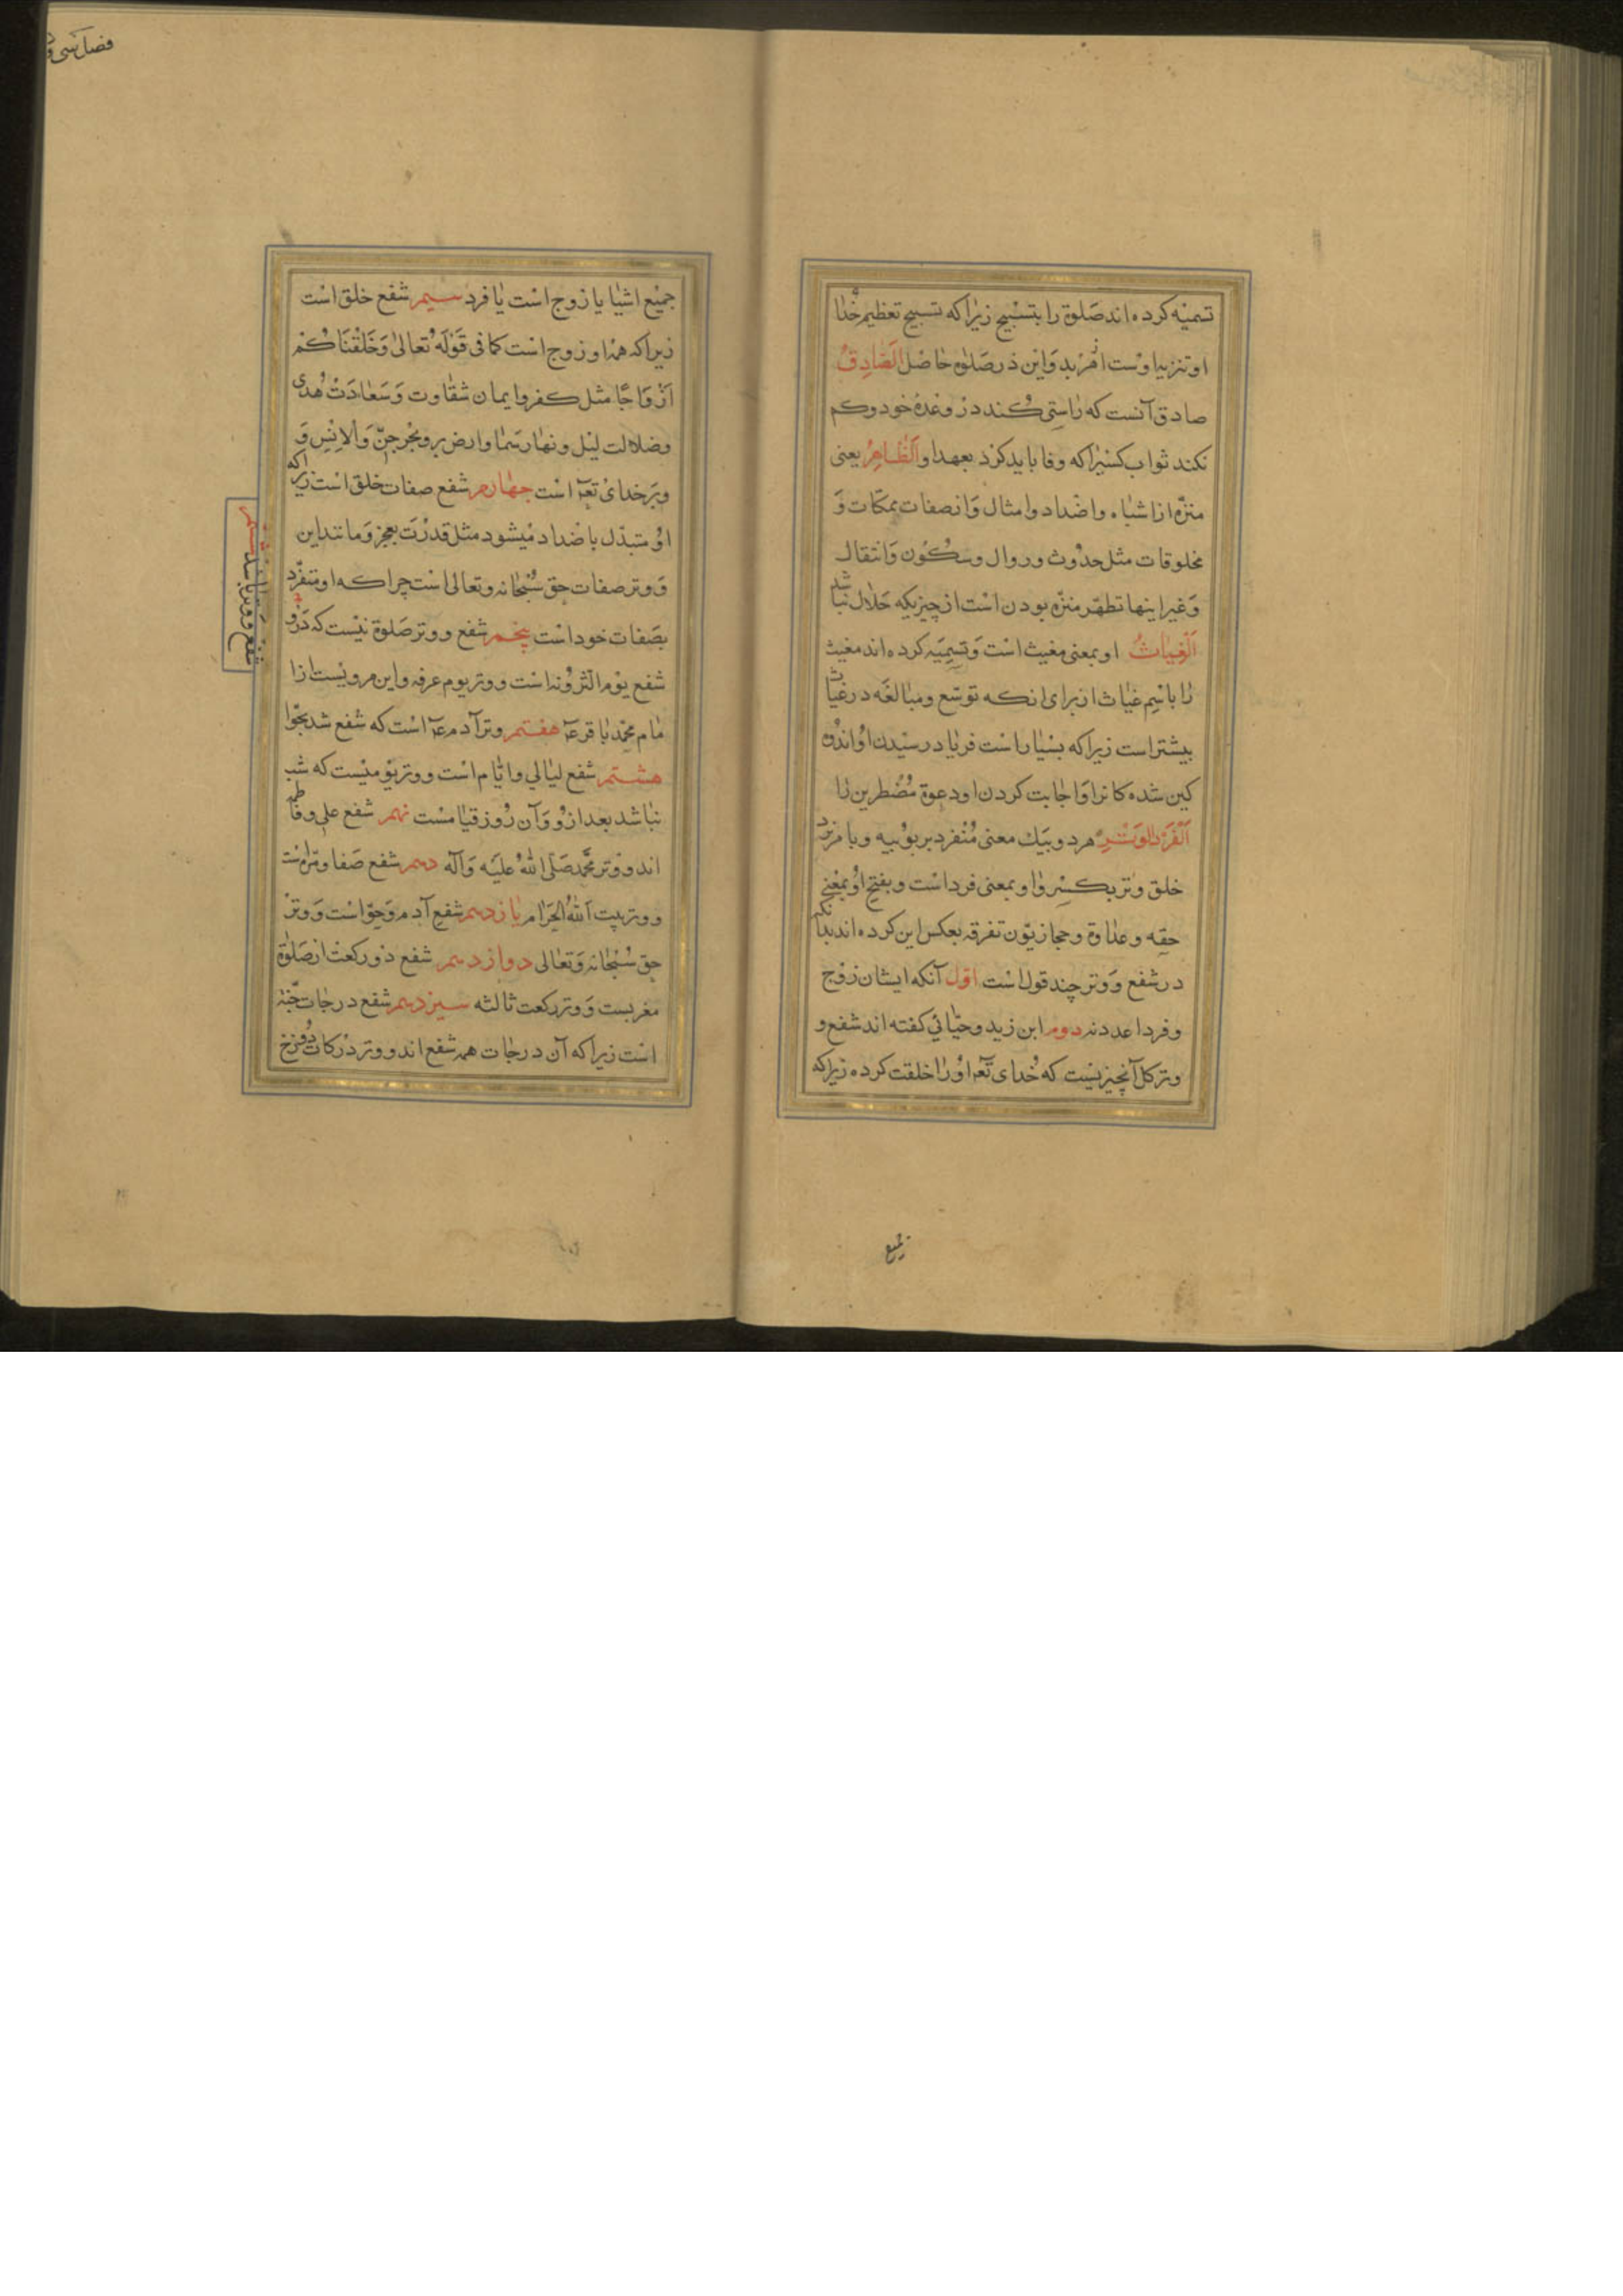 تسمیه کرده اند صلوة را بتسبیح زیرا که تسبیح تعظیم خدا
او تنزیه اوست از هر بد و این در صلوة حاصل الصادق
صادق آنست که راستی کند در وعده خود و کم
نکند ثواب کسیرا که وفا باید کرد بعهد او الطاهر یعنی
منزه از اشباه و اضداد و امثال و از صفات ممکنات و
مخلوقات مثل حدوث و زوال و سکون و انتقال
و غیر اینها تطهر منزه بودن است از چیزیکه حلال نباشد
الغیاث او بمعنی مغیث است و تسمیه کرده اند مغیث
را باسم غیاث از برای انکه توسع و مبالغه در غیاث
بیشتر است زیرا که بسیار است فریاد رسیدن او اندوه
کین شده کانرا و اجابت کردن او دعوة مضطرین را
الفرد الوتر هر دو بیک معنی منفرد بربوبیه و با مر
خلق وتر بکسر واو بمعنی فرد است و بفتح او بمعنی
حقه و عداوة و حجازیون تفرقه بعکس این کرده اند بدانکه
در شفع و وتر چند قول است اول آنکه ایشان زوج
و فرد اعددند دوم ابن زید و جبائی کفته اند شفع و
وتر کل آنچیزیست که خدای تعه اورا خلقت کرده زیرا که
جمیع
فصل سی و
جمیع اشیا یا زوج است یا فرد سیم شفع خلق است
زیرا که همه او زوج است کما فی قوله تعالی وخلقناکم
ازواجا مثل کفر و ایمان شقاوت و سعادت هدی
وضلالت لیل و نهار سما و ارض بر و بحر جن والانس و
وتر خدای تعه است چهارم شفع صفات خلق است زیرا که
او متبدل باضداد میشود مثل قدرت بعجز و مانند این
و وتر صفات حق سبحانه و تعالی است چرا که او متفرد
بصفات خود است پنجم شفع و وتر صلوة نیست که درو
شفع و وتر باشد ششم
شفع یوم الترونه است و وتر یوم عرفه و این مرویست از ا
مام محمد باقر عه هفتم وتر آدم عه است که شفع شد بحوا
هشتم شفع لیالی و ایام است و وتر یومیست که شب
نباشد بعد از و و آن روز قیامست نهم شفع علی و فاطمه
اند و وتر محمد صلی الله علیه و آله دهم شفع صفا و مروه است
و وتر بیت الله الحرام یازدهم شفع آدم و حوا است و وتر
حق سبحانه و تعالی دوازدهم شفع دو رکعت از صلوة
مغربست و وتر رکعت ثالثه سیزدهم شفع درجات جنه
است زیرا که آن درجات همه شفع اند و وتر درکات دوزخ